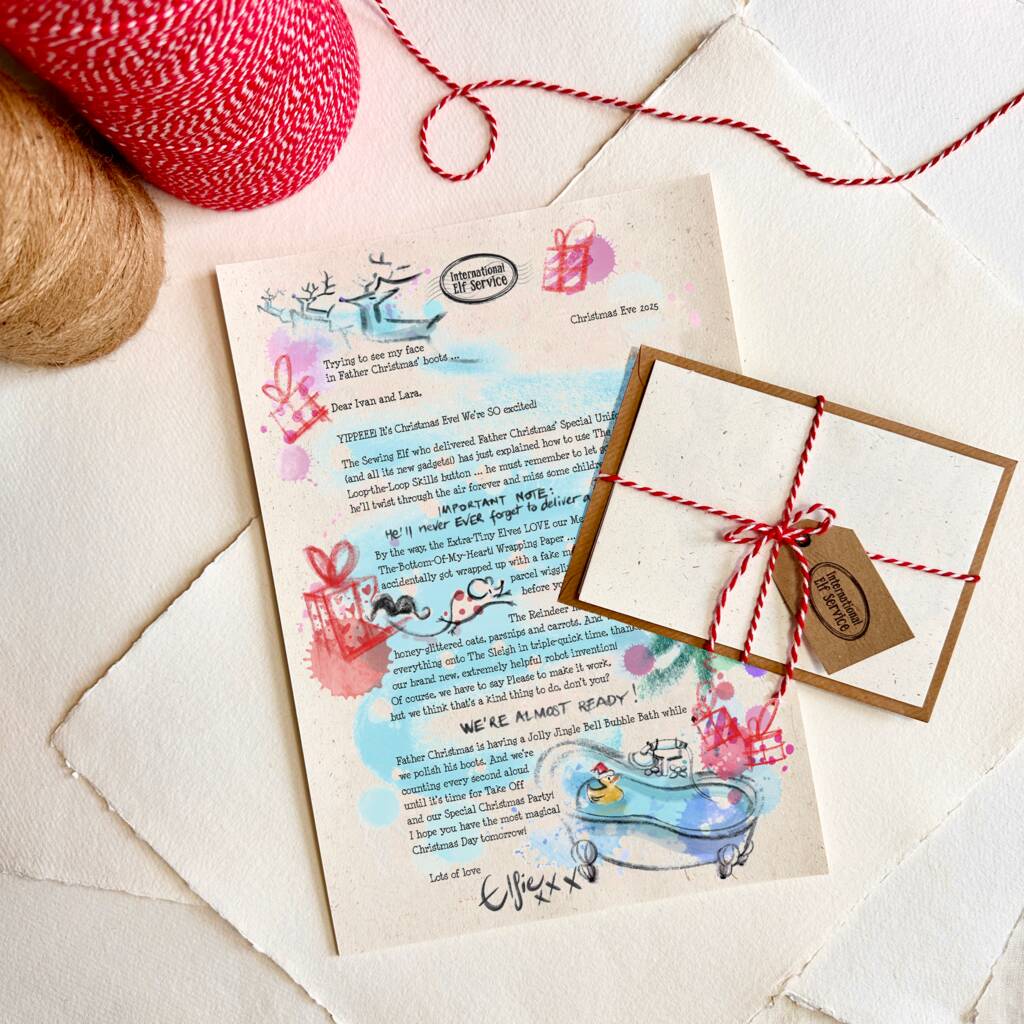 International
Elf Service
Christmas Eve 2025
Trying to see my face
in Father Christmas' boots ...
Dear Ivan and Lara,
YIPPEEE! It's Christmas Eve! We're SO excited!
The Sewing Elf who delivered Father Christmas' Special
(and all its new gadgets!) has just explained how to use The
Loop-the-Loop Skills button ... he must remember to let
he'll twist through the air forever and miss some
IMPORTANT NOTE:
He'll never EVER forget to deliver
By the way, the Extra-Tiny Elves LOVE our
The-Bottom-Of-My-Heart! Wrapping Paper ...
accidentally got wrapped up with a fake
parcel
before
The Reindeer
honey-glittered oats, parsnips and carrots. And
everything onto The Sleigh in triple-quick time,
our brand new, extremely helpful robot invention!
Of course, we have to say Please to make it work,
but we think that's a kind thing to do, don't you?
WE'RE ALMOST READY!
Father Christmas is having a Jolly Jingle Bell Bubble Bath while
we polish his boots. And we're
counting every second aloud
until it's time for Take Off
and our Special Christmas Party!
I hope you have the most magical
Christmas Day tomorrow!
Lots of love
Elfie xxx
International
Elf Service